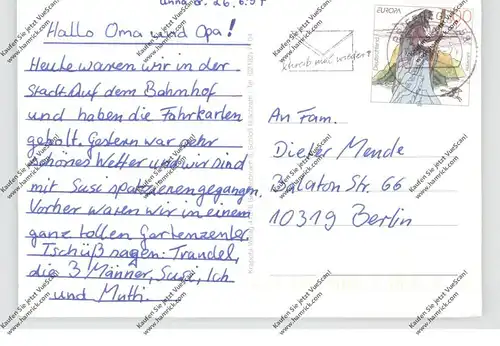 26.6.97
Hallo Oma und Opa!
Heute waren wir in der
Stadt. Auf dem Bahnhof
und haben die Fahrkarten
geholt. Gestern war sehr
schönes Wetter und wir sind
mit Susi spazierengegangen.
Vorher waren wir in einem
ganz tollen Gartenzenter.
Tschüß sagen: Traudel,
die 3 Männer, Susi, Ich
und Mutti.
EUROPA
Deutschland
Schreib mal wieder!
An Fam.
Dieter Mende
Balaton Str. 66
10319 Berlin
Kaufen Sie jetzt VueScan!
www.hamrick.com